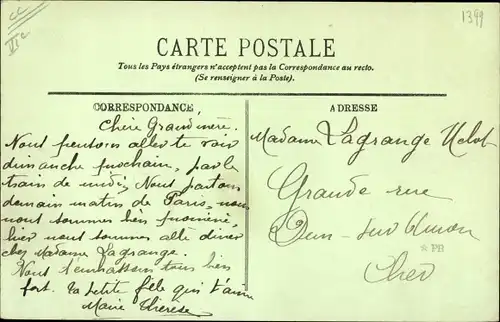 CC
VIc
1399
CARTE POSTALE
Tous les Pays étrangers n'acceptent pas la Correspondance au recto.
(Se renseigner à la Poste).
CORRESPONDANCE
Chère Grand'mère.
Nous pensons aller te voir
dimanche prochain, par le
train de midi. Nous partons
demain matin de Paris, nous
nous sommes bien promené,
hier nous sommes allé dîner
chez Madame Lagrange.
Nous t'embrassons tous bien
fort. Ta petite fille qui t'aime
Marie Thérèse
ADRESSE
Madame Lagrange
Grande rue
Dun-sur-Auron
*PB
Cher